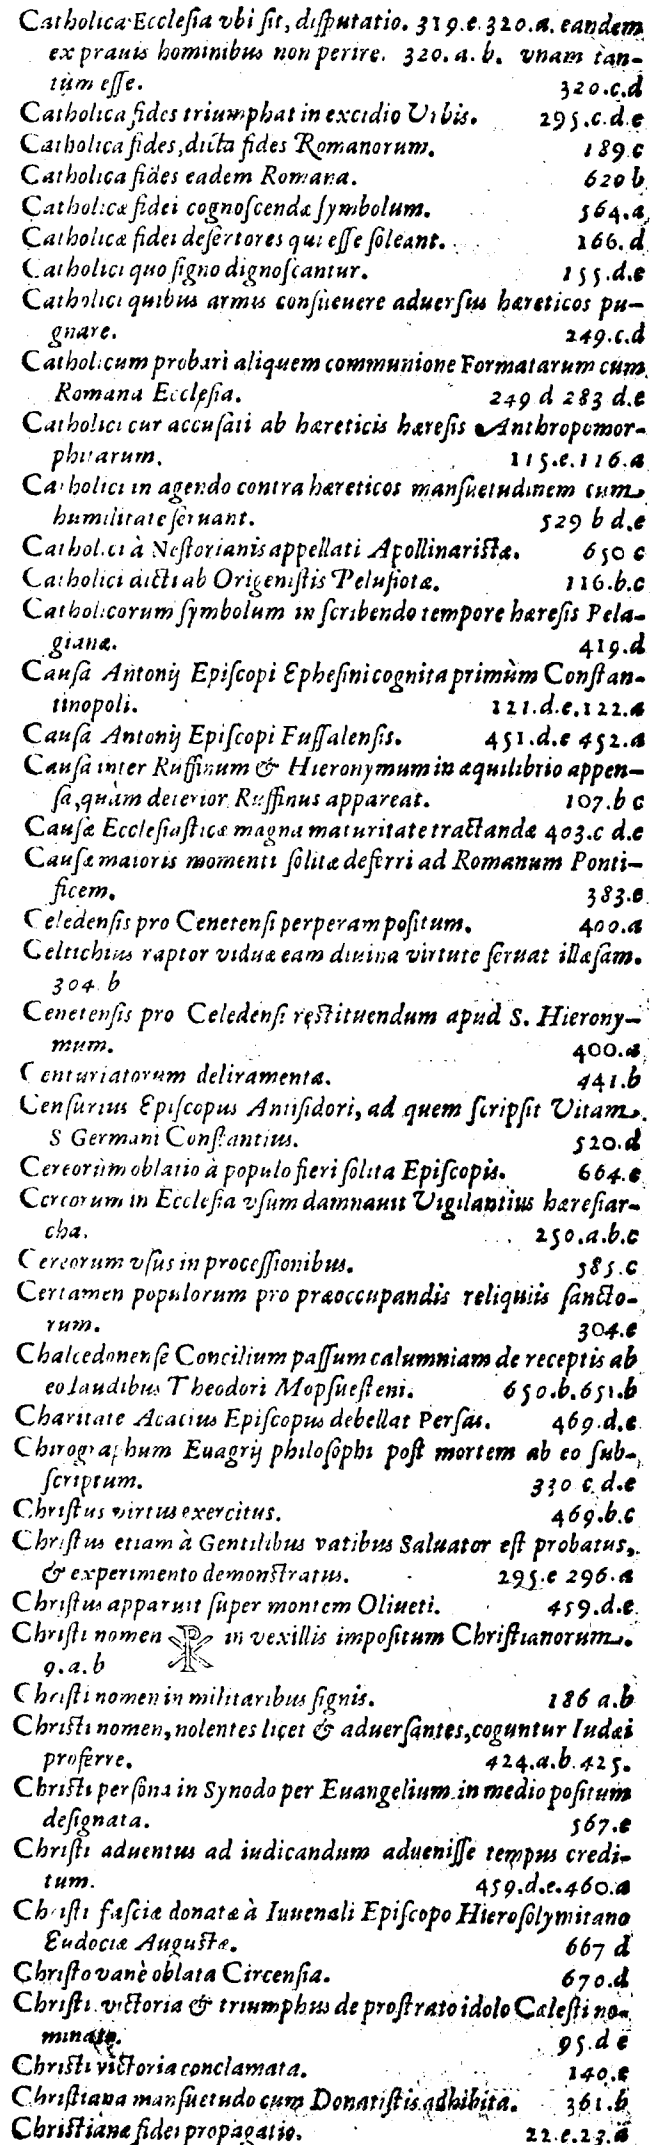 Catholica Ecclesia vbi sit, disputatio. 319.e.320.a. eandem
ex prauis hominibus non perire. 320.a.b. vnam tan-
tùm esse. 320.c.d
Catholica fides triumphat in excidio Vrbis. 295.c.d.e
Catholica fides, dicta fides Romanorum. 189 c
Catholica fides eadem Romana. 620 b
Catholicæ fidei cognoscendæ symbolum. 564.a
Catholicæ fidei desertores qui esse soleant. 166.d
Catholici quo signo dignoscantur. 155.d.e
Catholici quibus armis consueuere aduersus hæreticos pu-
gnare. 249.c.d
Catholicum probari aliquem communione Formatarum cum
Romana Ecclesia. 249 d 283 d.e
Catholici cur accusati ab hæreticis hæresis Anthropomor-
phitarum. 115.e.116.a
Catholici in agendo contra hæreticos mansuetudinem cum
humilitate seruant. 529 b d.e
Catholici à Nestorianis appellati Apollinaristæ. 650 c
Catholici dicti ab Origenistis Pelusiotæ. 116.b.c
Catholicorum symbolum in scribendo tempore hæresis Pela-
gianæ. 419.d
Causa Antonij Episcopi Ephesini cognita primùm Constan-
tinopoli. 121.d.e.122.a
Causa Antonij Episcopi Fussalensis. 451.d.e 452.a
Causa inter Ruffinum & Hieronymum in æquilibrio appen-
sa, quàm deterior Ruffinus appareat. 107.b c
Causæ Ecclesiasticæ magna maturitate tractandæ 403.c d.e
Causæ maioris momenti solitæ deferri ad Romanum Ponti-
ficem. 383.e
Celedensis pro Cenetensi perperam positum. 400.a
Celtichius raptor viduæ eam diuina virtute seruat illæsam.
304. b
Cenetensis pro Celedensi restituendum apud S. Hierony-
mum. 400.a
Centuriatorum deliramenta. 441.b
Censurius Episcopus Antisidori, ad quem scripsit Vitam
S Germani Constantius. 520.d
Cereorùm oblatio à populo fieri solita Episcopis. 664.e
Cereorum in Ecclesia vsum damnauit Vigilantius hæresiar-
cha. 250.a.b.c
Cereorum vsus in processionibus. 585.c
Certamen populorum pro præoccupandis reliquiis sancto-
rum. 304.e
Chalcedonense Concilium passum calumniam de receptis ab
eo laudibus Theodori Mopsuesteni. 650.b.651.b
Charitate Acacius Episcopus debellat Persas. 469.d.e
Chirographum Euagrij philosophi post mortem ab eo sub-
scriptum. 330 c d.e
Christus virtus exercitus. 469.b.c
Christus etiam à Gentilibus vatibus Saluator est probatus,
& experimento demonstratus. 295.e 296.a
Christus apparuit super montem Oliueti. 459.d.e
Christi nomen ☧ in vexillis impositum Christianorum.
9.a.b
Christi nomen in militaribus signis. 186 a.b
Christi nomen, nolentes licet & aduersantes, coguntur Iudæi
proferre. 424.a.b.425.
Christi persona in Synodo per Euangelium in medio positum
designata. 567.e
Christi aduentus ad iudicandum aduenisse tempus credi-
tum. 459.d.e.460.a
Christi fasciæ donatæ à Iuuenali Episcopo Hierosolymitano
Eudociæ Augustæ. 667 d
Christo vanè oblata Circensia. 670.d
Christi victoria & triumphus de prostrato idolo Cælesti no-
minato. 95.d e
Christi victoria conclamata. 140.e
Christiana mansuetudo cum Donatistis adhibita. 361.b
Christianæ fidei propagatio. 22.e.23.a